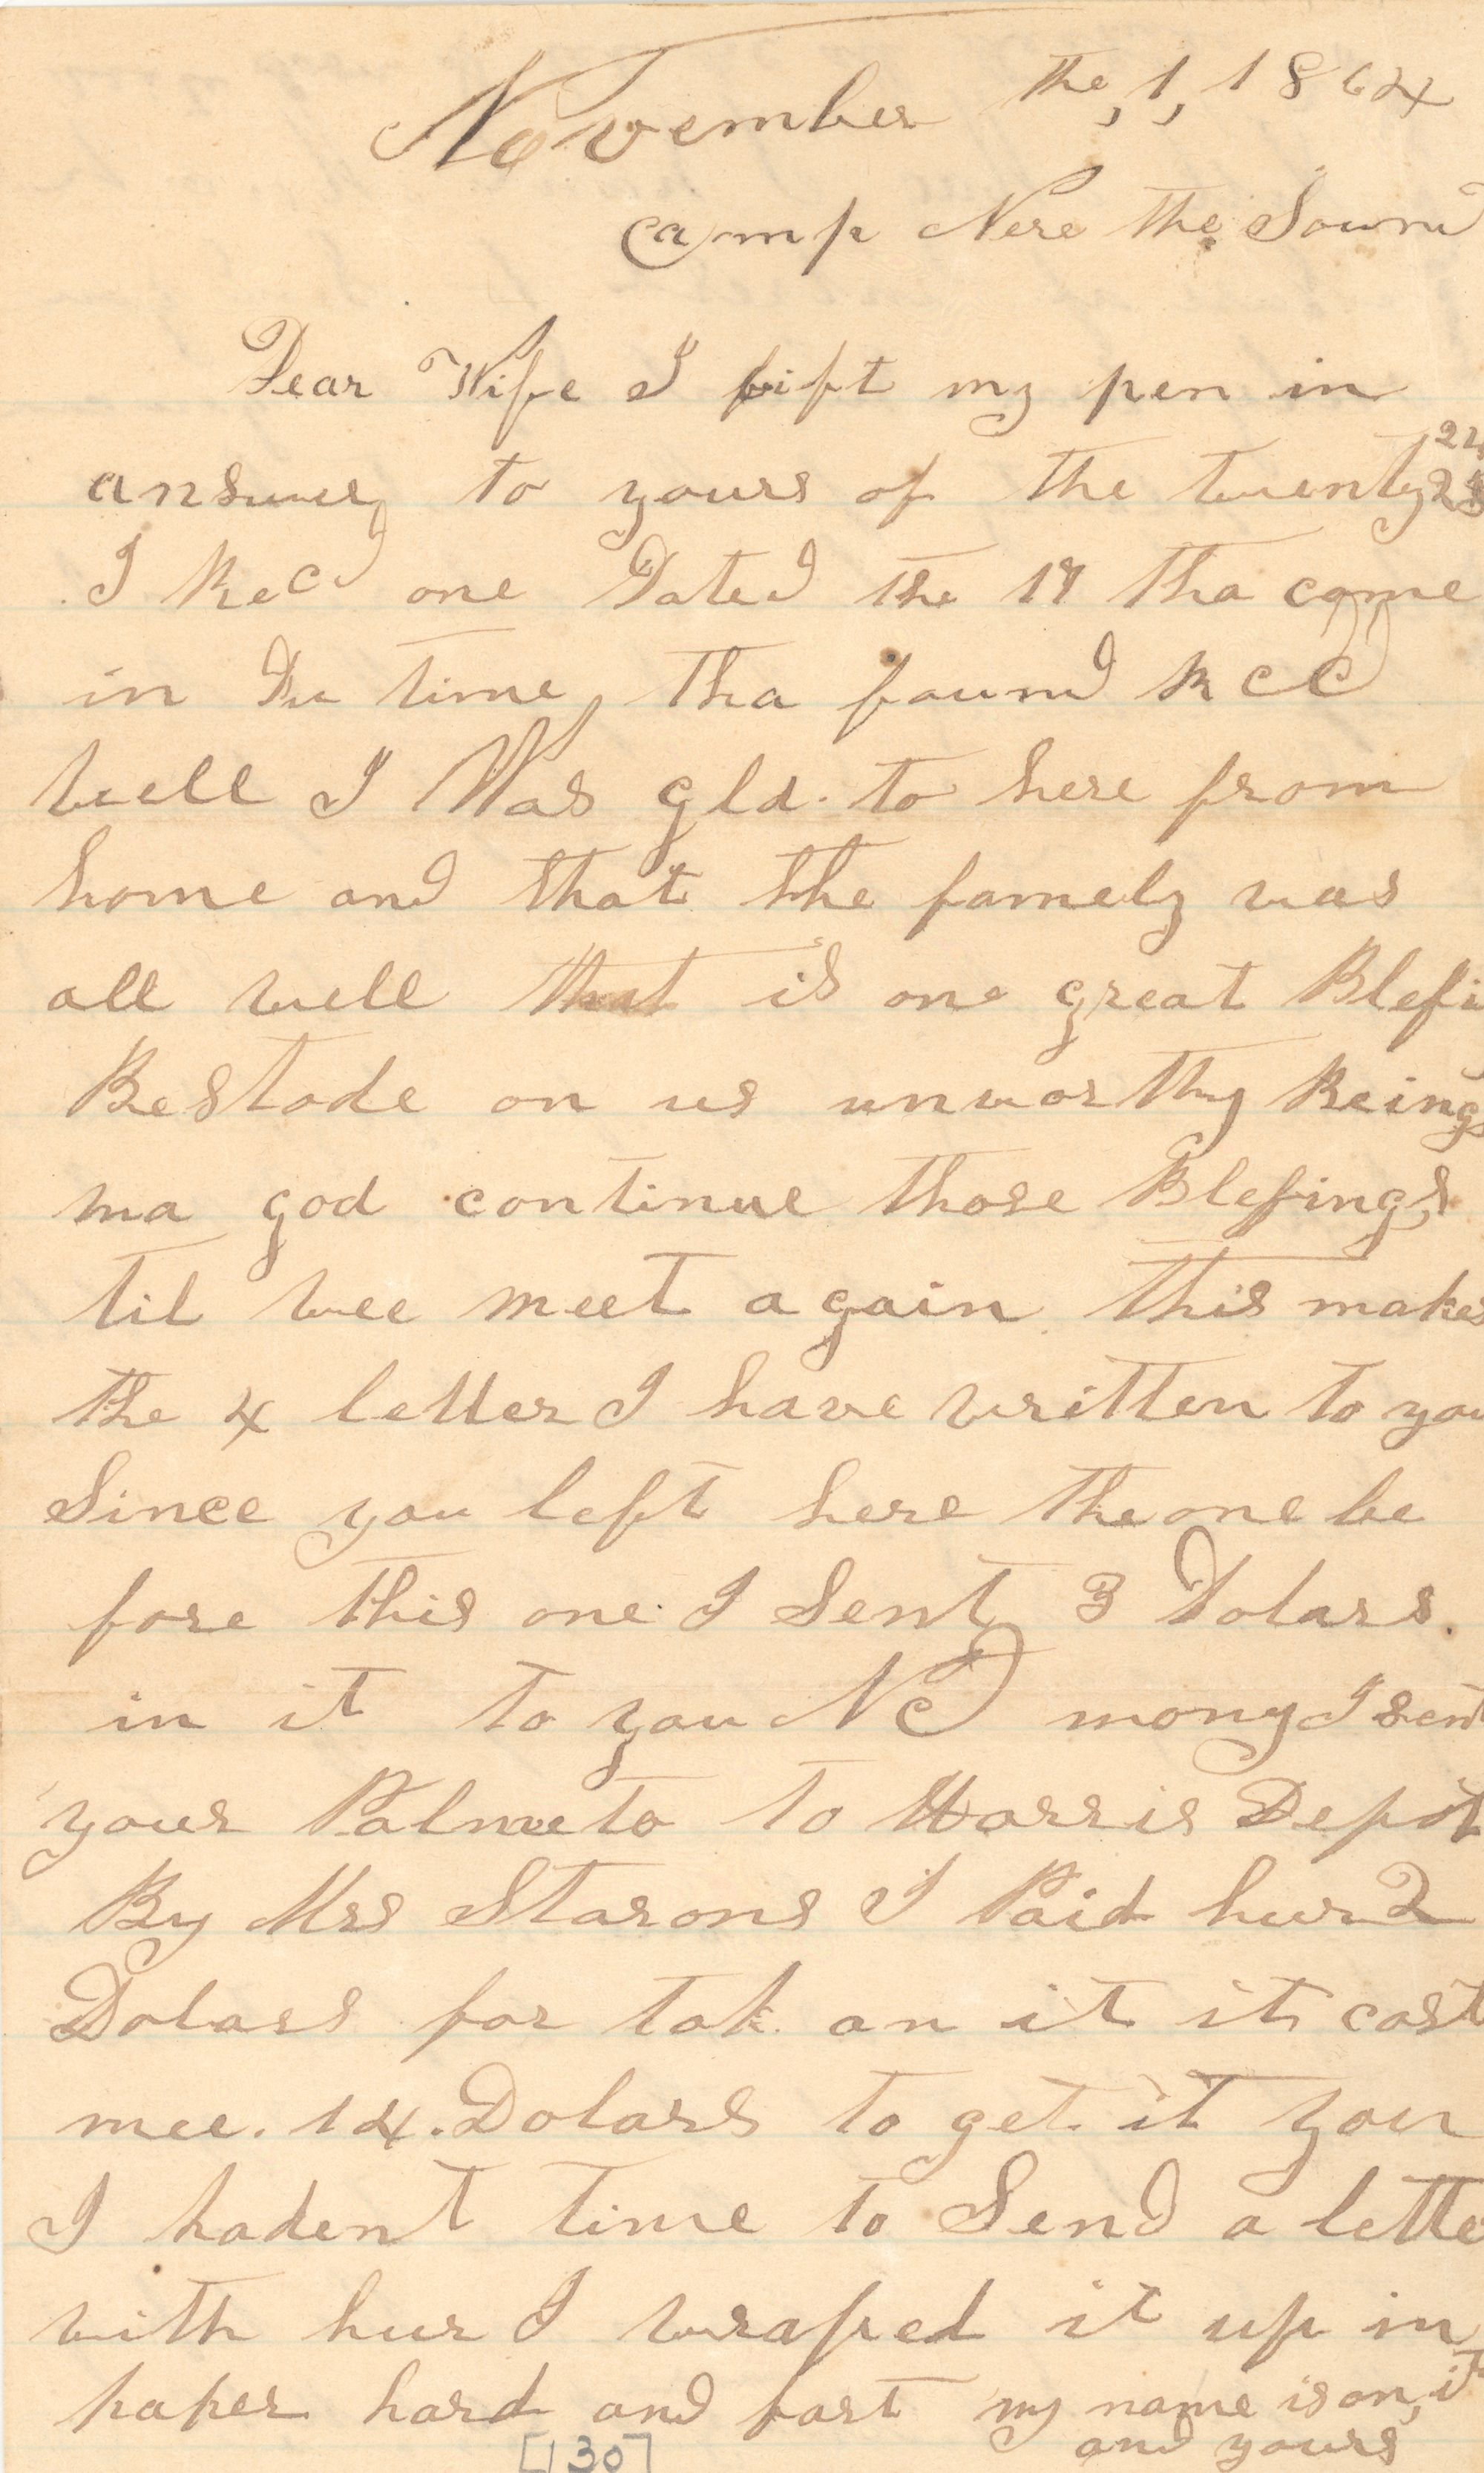 November the, 1, 1864
camp Nere the Sound
Dear Wife I lift my pen in
answer to yours of the twenty 24
I Recd one Dated the 17 tha come
in Du time, tha found mee
well I Was glad to here from
home and that the famely was
all well that is one great Blesi
Bestode on us unworthy Beings
ma god continue those Blesings
til wee meet again this makes
the 4 letter I have written to you
Since you left here the one be
fore this one I Sent 3 Dolars.
in it to you NC mony I sent
your Palmeto to Harris Depot
By Mrs Starons I Paid hur 2
Dolars for tak an it it cost
mee. 14. Dolars to get it you
I hadent time to Send a lette
with hur I wraped it up in
paper hard and fast my name is on, it
and yours
[130]